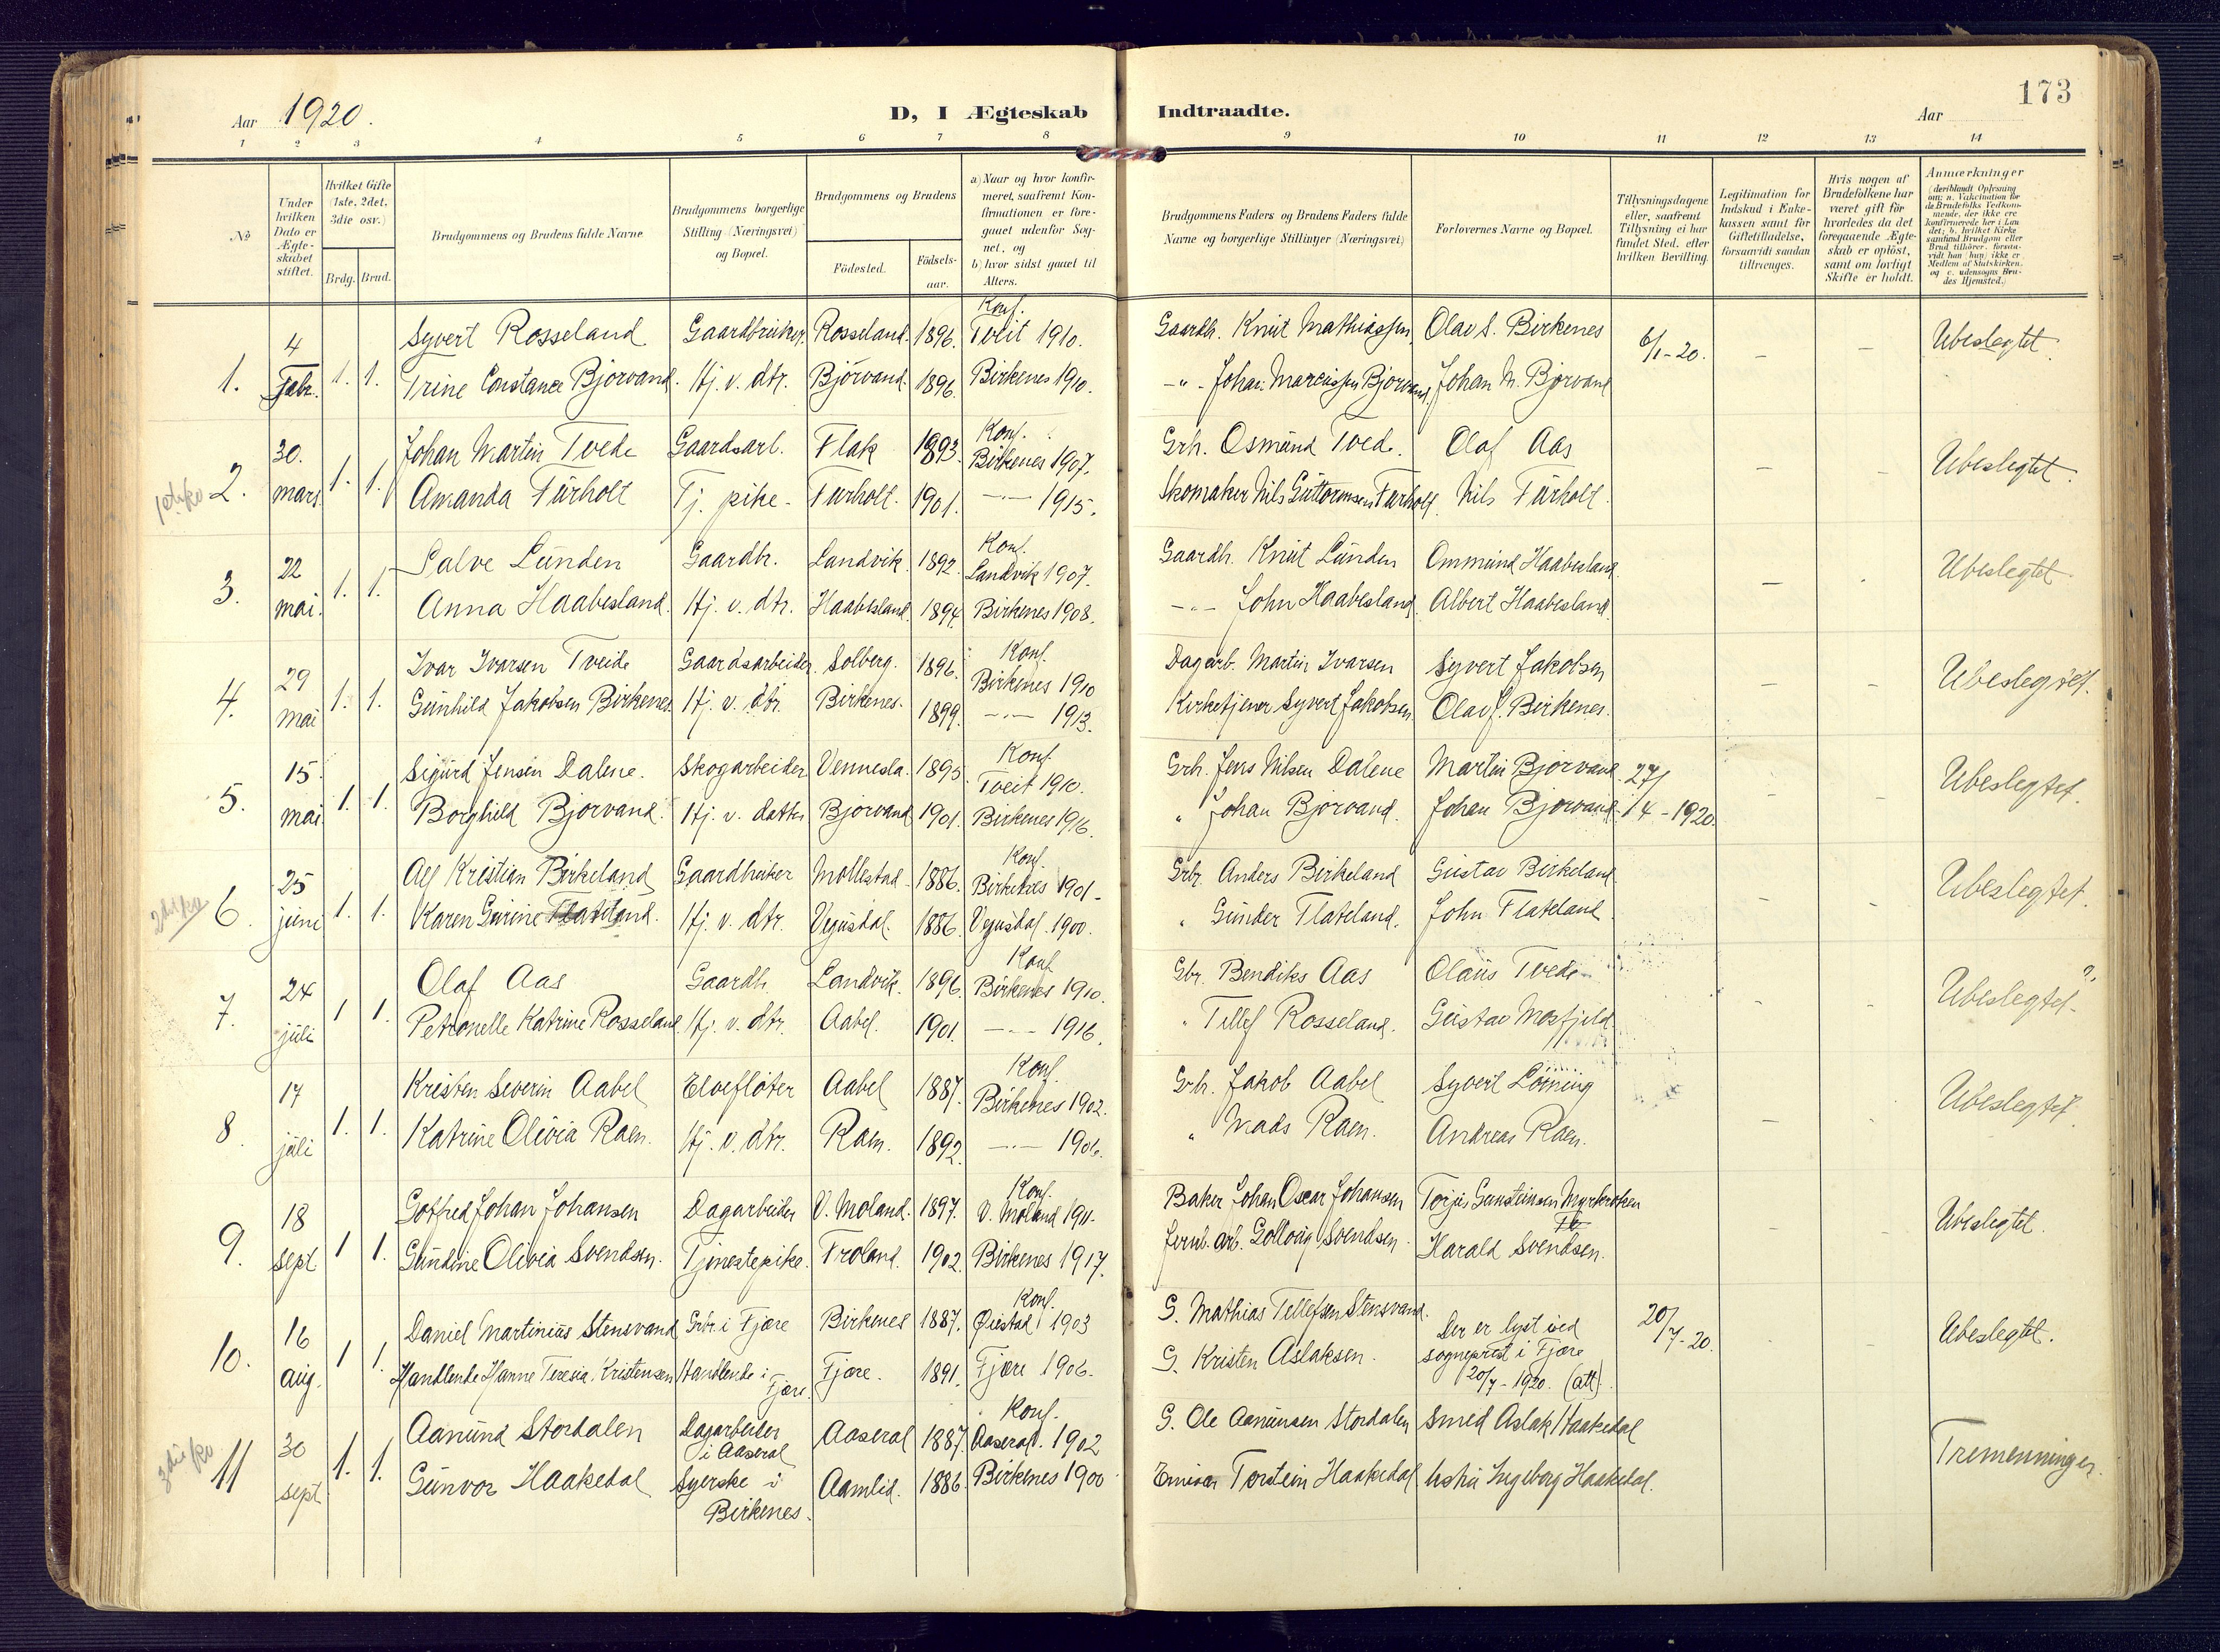 173
Aar 1920.
D, I Ægteskab Indtraadte.
Aar
1 2 3 4 5 6 7 8 9 10 11 12 13 14
No
Under hvilken Dato er Ægteskabet stiftet.
Hvilket Gifte (1ste, 2det, 3die osv.)
Brdg. Brud.
Brudgommens og Brudens fulde Navne
Brudgommens borgerlige Stilling (Næringsvei) og Bopæl.
Brudgommens og Brudens
Födested.
Födsels-aar.
a) Naar og hvor konfirmeret, saafremt Konfirmationen er foregaaet udenfor Sognet, og
b) hvor sidst gaaet til Alters.
Brudgommens Faders og Brudens Faders fulde Navne og borgerlige Stillinger (Næringsvei)
Forlovernes Navne og Bopæl.
Tillysningsdagene eller, saafremt Tillysning ei har fundet Sted, efter hvilken Bevilling.
Legitimation for Indskud i Enkekassen samt for Giftetilladelse, forsaavidt saadan tiltrænges.
Hvis nogen af Brudefolkene har været gift för hvorledes da det foregaaende Ægteskab er oplöst, samt om lovligt Skifte er holdt.
Anmærkninger
(deriblandt Oplysning om: a. Vakcination for de Brudefolks Vedkommende, der ikke ere konfirmerede her i Landet; b. hvilket Kirkesamfund Brudgom eller Brud tilhörer, forsaavidt han (hun) ikke er Medlem af Statskirken, og c. udensogns Brudes Hjemsted.)
1. 4 Febr. 1. 1. Syvert Rosseland Gaardbruker. Rosseland. 1896. Konf. Tveit 1910. Gaardb. Knut Mathiassen Olav S. Birkenes 6/1-20. – – Ubeslegtet.
Trine Constance Bjorvand. Hj. v. dtr. Björvand. 1896. Birkenes 1910. –"– Johan Marcussen Bjorvand. Johan M. Bjorvand
2. 30. mars. 1. 1. Johan Martin Tvede Gaardsarb. Flak 1893. Konf. Birkenes 1907. Grb. Osmund Tvede. Olaf Aas – – Ubeslegtet.
Amanda Furholt Tj. pike- Furholt. 1901. –"– 1915. Skomaker Nils Guttormsen Furholt. Nils Furholt.
3. 22 mai. 1. 1. Salve Lunden Gaardb. Landvik. 1892. Konf. Landvik 1907. Gaardb. Knut Lunden Ommund Haabesland. – . Ubeslegtet.
Anna Haabesland. Hj. v. dtr. Haabesland. 1894. Birkenes 1908. –"– John Haabesland. Albert Haabesland.
4. 29 mai 1. 1. Ivar Ivarsen Tveide Gaardsarbeider. Solberg. 1896. Konf. Birkenes 1910 Dagarb. Martin Ivarsen Syvert Jakobsen – – Ubeslegtet.
Gunhild Jakobsen Birkenes. Hj. v. dtr. Birkenes. 1899. –"– 1913. Kirketjener Syvert Jakobsen. Olav J. Birkenes.
5. 15. mai. 1. 1. Sigurd Jensen Dalene. Skogarbeider Vennesla. 1895. Konf. Tveit 1910. Grb. Jens Nilsen Dalene Martin Bjorvand 27/4-1920. – – Ubeslegtet.
Borghild Bjorvand. Hj. v. datter Bjorvand 1901. Birkenes 1916. " Johan Bjorvand. Johan Bjorvand.
6. 25 juni 1. 1. Alf Kristian Birkeland Gaardbruker Mollestad 1886. Konf. Birkenes 1901- Grbr. Anders Birkeland Gustav Birkeland – – Ubeslegtet.
Karen Gurine Flateland. Hj. v. dtr. Vegusdal. 1886. Vegusdal 1900. " Gunder Flateland. John Flateland.
7. 24 juli 1 1. Olaf Aas Gaardb. Landvik. 1896. Konf. Birkenes 1910. Gbr. Bendiks Aas Olaus Tvede – – Ubeslegtet.?
Petronelle Katrine Rosseland. Hj. v. dtr. Aabel. 1901. –"– 1916. " Tellef Rosseland. Gustav Mosfjeld
8. 17 juli 1. 1. Kristen Severin Aabel Elvefløter Aabel 1887. Konf. Birkenes 1902. Grb. Jakob Aabel Syvert – Ubeslegtet.
Katrine Olivia Raen. Hj. v. dtr. Raen. 1892. –"– " Mads Raen. Andreas Raen.
9. 18 sept 1 1. Gotfred Johan Johansen Dagarbeider V. Moland. 1897. Konf. V. Moland 1911. Baker Johan Oscar Johansen Torjus Gunsteinsen – – Ubeslegtet.
Gundine Olivia Svendsen. Tjenestepike. Froland. 1902. Birkenes 1917. Jernb. arb. Svendsen. Harald Svendsen.
10. 16 aug. 1 1. Daniel Martinius Stensvand Grbr. i Fjære Birkenes 1887. Konf. Øiestad 1903 G. Mathias Tellefsen Stensvand. Der er lyst ved sogneprest i Fjære 20/7-1920. (att). 20/7-20. – – Ubeslegtet.
Handlende Hanne Teresia Kristensen Handlende i Fjære. Fjære. 1891. Fjære 1906. G. Kristen Aslaksen.
11 30 sept 1. 1. Aanund Stordalen Dagarbeider i Aaseral Aaseral 1887. Konf. Aaseral. 1902 G. Ole Aanunsen Stordalen Smed Aslak Haakedal Tremenninger.
Gunvor Haakedal Syerske i Birkenes. Aamlid. 1886. Birkenes 1900 Torstein Haakedal Ingeborg Haakedal.